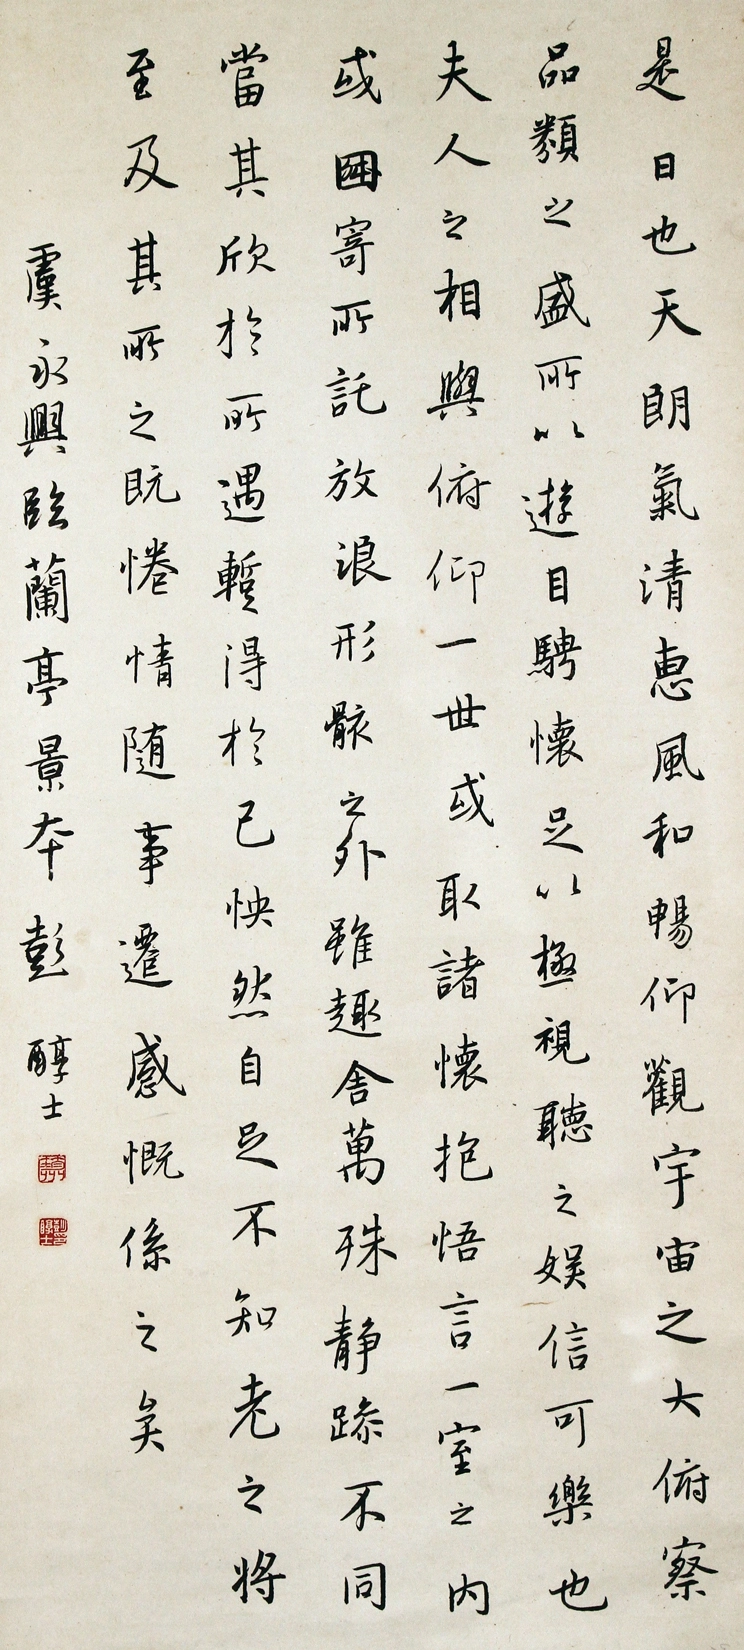 是日也天朗氣清惠風和暢仰觀宇宙之大俯察
品類之盛所以遊目騁懷足以極視聽之娛信可樂也
夫人之相與俯仰一世或取諸懷抱悟言一室之內
或因寄所託放浪形骸之外雖趣舍萬殊静躁不同
當其欣於所遇暫得於己怏然自足不知老之將
至及其所之既惓情隨事遷感慨係之矣
虞永興臨蘭亭景本彭醇士